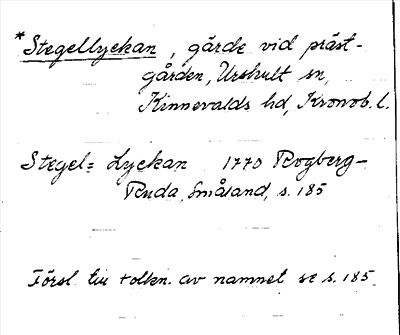 *Stegellyckan, gärde vid präst-
gården, Urshult sn,
Kinnevalds hd, Kronob. l.
Stegel= Lyckan 1770 Rogberg-
Ruda, Småland, s. 185
Försl. till tolkn. av namnet se s. 185.